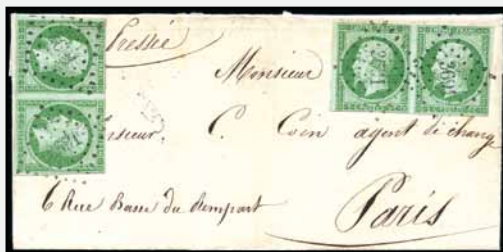 Pressée
Monsieur
C. Coin agent de change
6 Rue Basse du Rempart
Paris